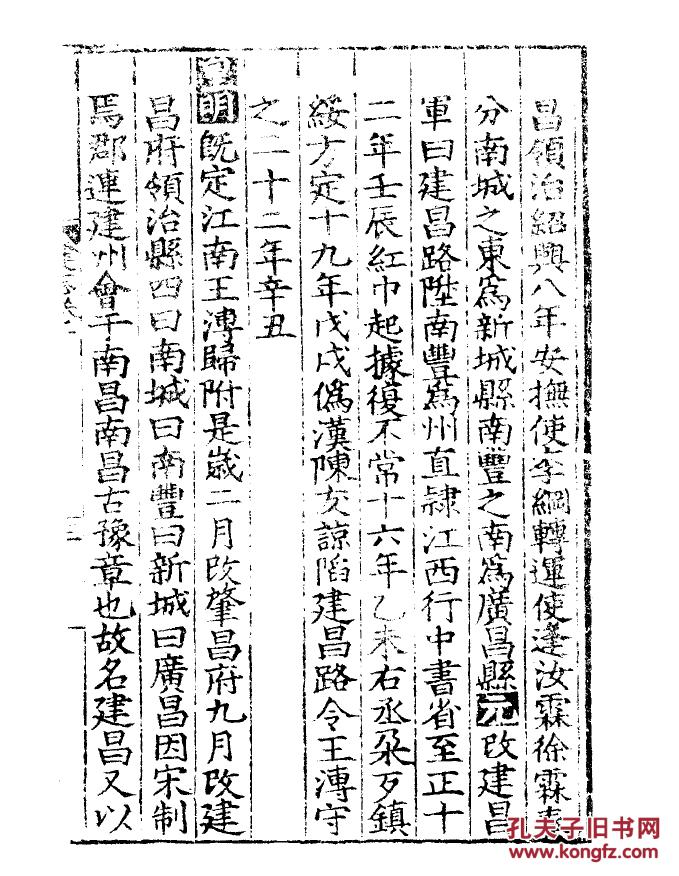 昌領治紹興八年安撫使李綱轉運使逄汝霖徐霖奏
分南城之東為新城縣南豐之南為廣昌縣元改建昌
軍曰建昌路陞南豐為州直隷江西行中書省至正十
二年壬辰紅巾起據復不常十六年乙未右丞朶歹鎮
綏方定十九年戊戌偽漢陳友諒陷建昌路令王溥守
之二十二年辛丑
皇明既定江南王溥歸附是嵗二月改肇昌府九月改建
昌府領治縣四曰南城曰南豐曰新城曰廣昌因宋制
焉郡連建州會于南昌南昌古豫章也故名建昌又以
孔夫子旧书网
www.kongfz.com